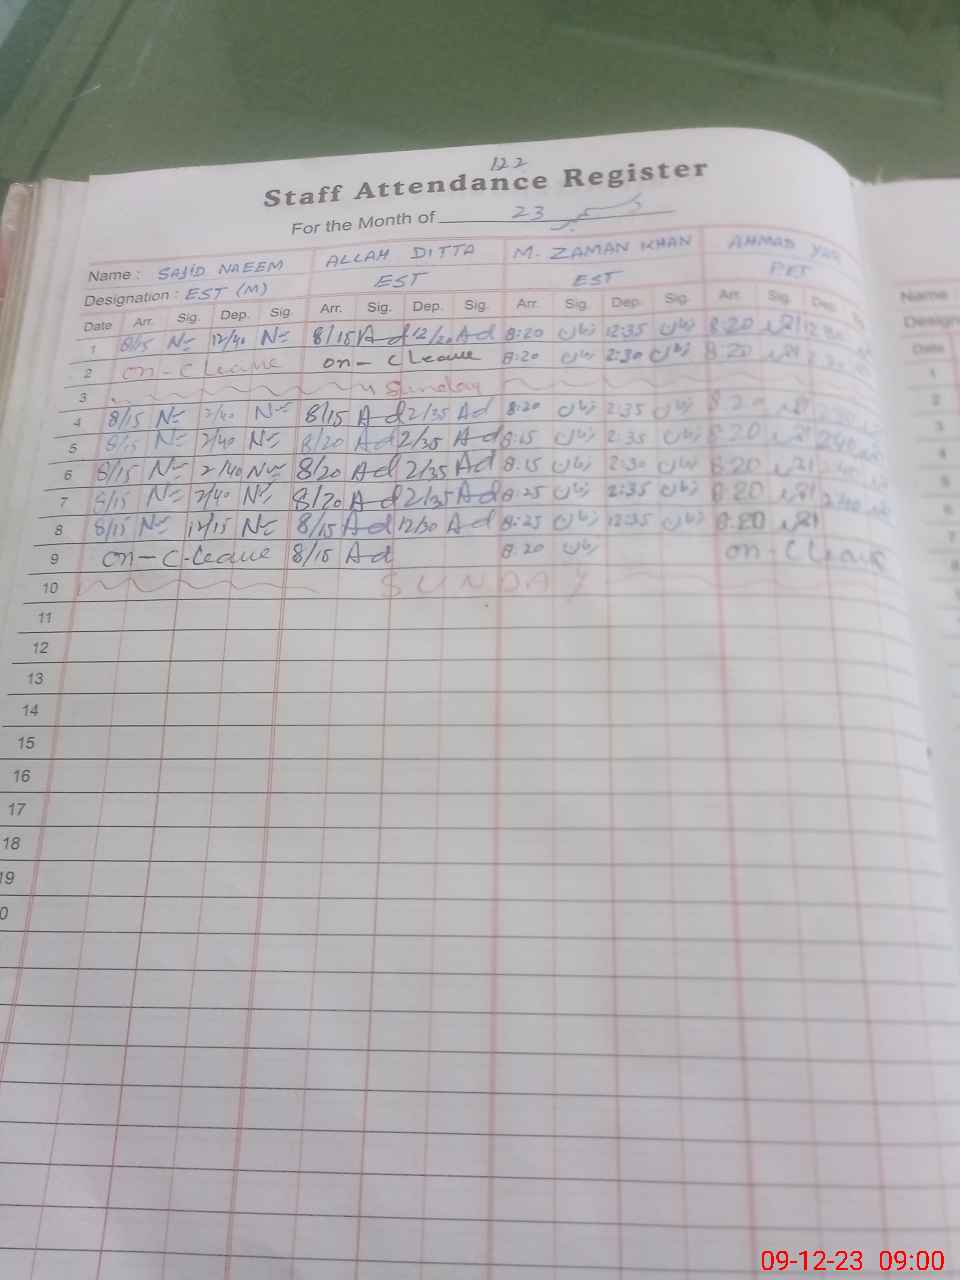 122
Staff Attendance Register
For the Month of 23 دسمبر
Name : SAJID NAEEM ALLAH DITTA M. ZAMAN KHAN AHMAD YAR
Designation : EST (M) EST EST PET
Date Arr. Sig. Dep. Sig. Arr. Sig. Dep. Sig. Arr. Sig. Dep. Sig. Arr. Sig. Dep.
1 8/15 N= 12/40 N= 8/15 Ad 12/20 Ad 8:20 12:35 8:20
2 on-C Leave on-C Leave 8:20 2:30 8:20
3 Sunday
4 8/15 N= 2/40 N= 8/15 Ad 2/35 Ad 8:20 2:35 8:20
5 8/15 N= 2/40 N= 8/20 Ad 2/35 Ad 8:15 2:35 8:20 2:40
6 8/15 N= 2/40 N= 8/20 Ad 2/35 Ad 8:15 2:30 8:20
7 8/15 N= 2/40 N= 8/20 Ad 2/35 Ad 8:25 2:35 8:20 2:40
8 8/15 N= 12/15 N= 8/15 Ad 12/30 Ad 8:25 12:35 8:20
9 on-C-Leave 8/15 Ad 8:20 on-C Leave
10 SUNDAY
11
12
13
14
15
16
17
18
19
0
Name
Date
1
2
3
4
5
6
7
8
09-12-23 09:00